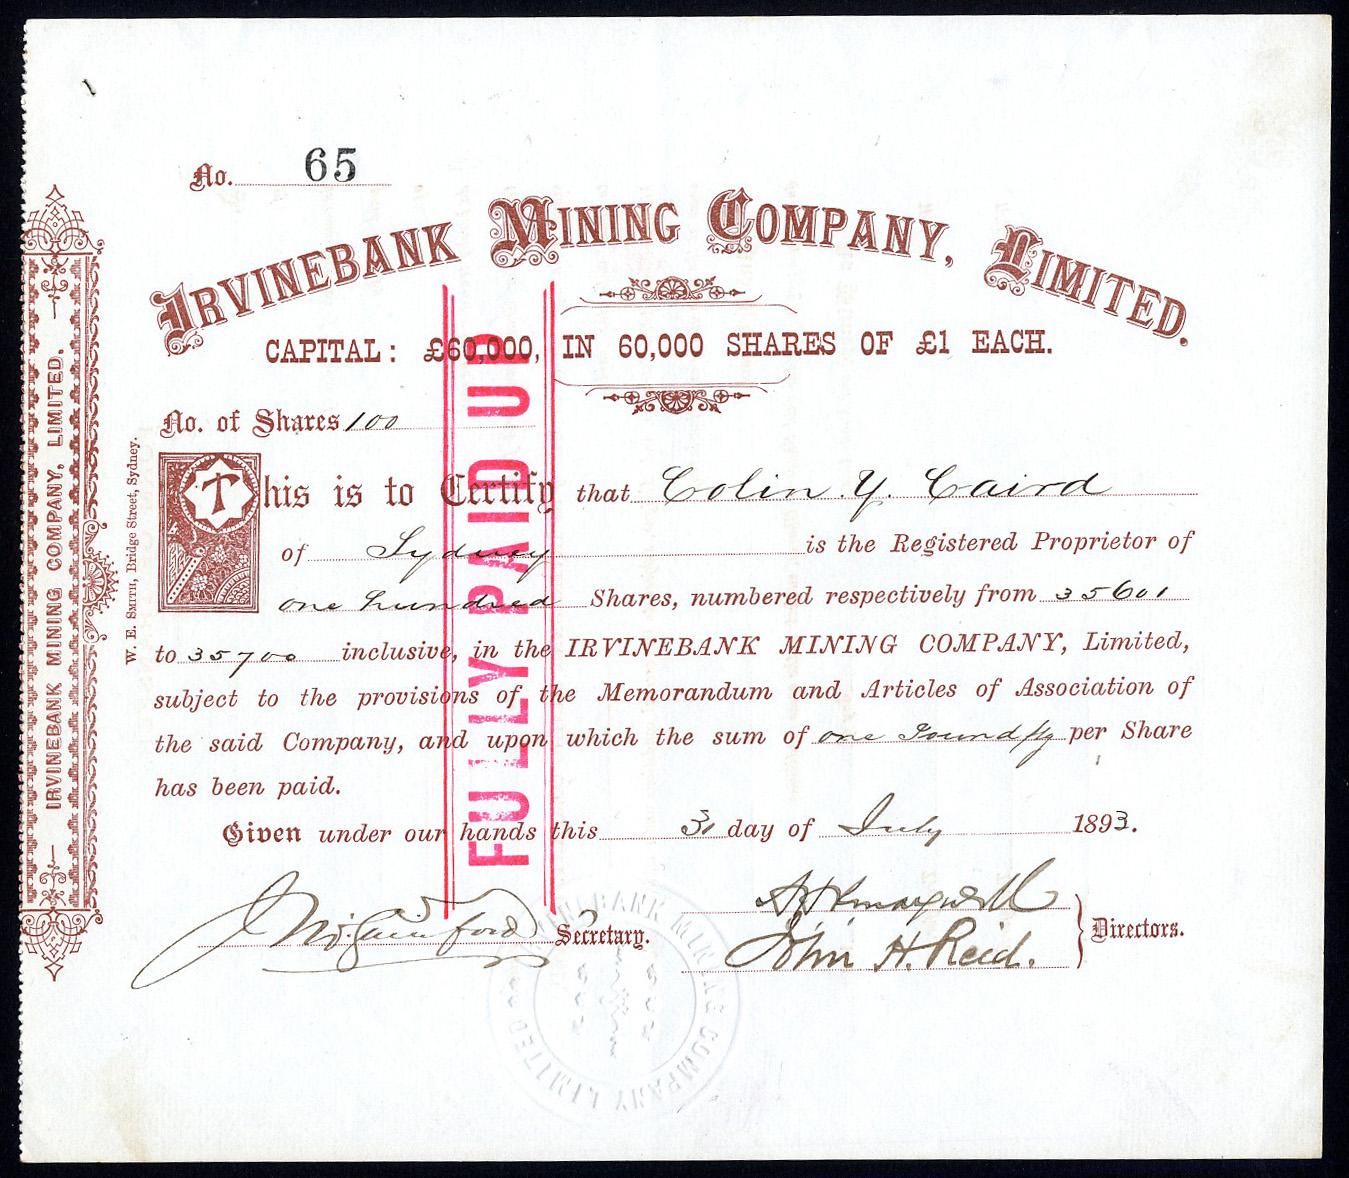 No. 65
IRVINEBANK MINING COMPANY, LIMITED.
CAPITAL: £60,000, IN 60,000 SHARES OF £1 EACH.
No. of Shares 100
This is to Certify that Colin Y. Caird
of Sydney is the Registered Proprietor of
one hundred Shares, numbered respectively from 35601
to 35700 inclusive, in the IRVINEBANK MINING COMPANY, Limited,
subject to the provisions of the Memorandum and Articles of Association of
the said Company, and upon which the sum of one Pound per Share
has been paid.
Given under our hands this 31 day of July 1893.
Secretary.
John H. Reid.
Directors.
FULLY PAID UP
IRVINEBANK MINING COMPANY, LIMITED.
W. E. SMITH, Bridge Street, Sydney.
IRVINEBANK MINING COMPANY LIMITED